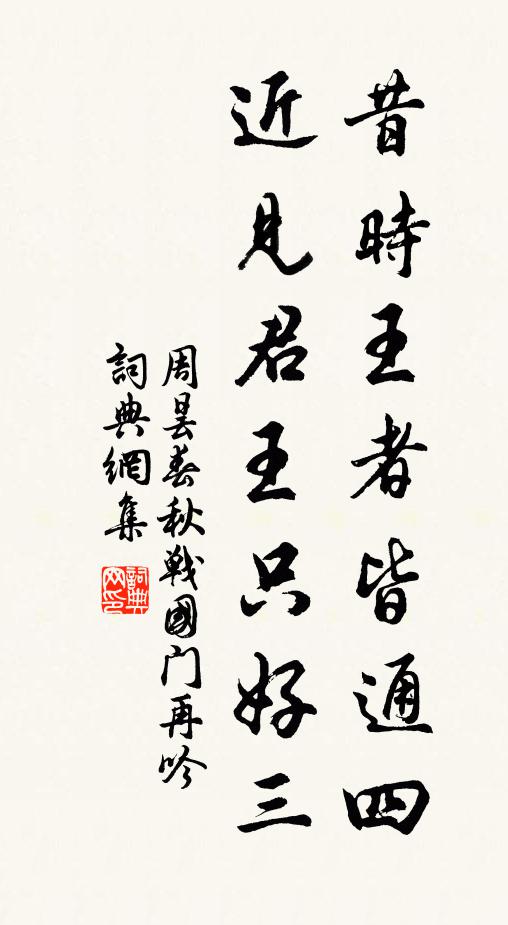 昔時王者皆通四
近見君王只好三
周昙春秋戦國门再吟
詞典網集
詞典
网印